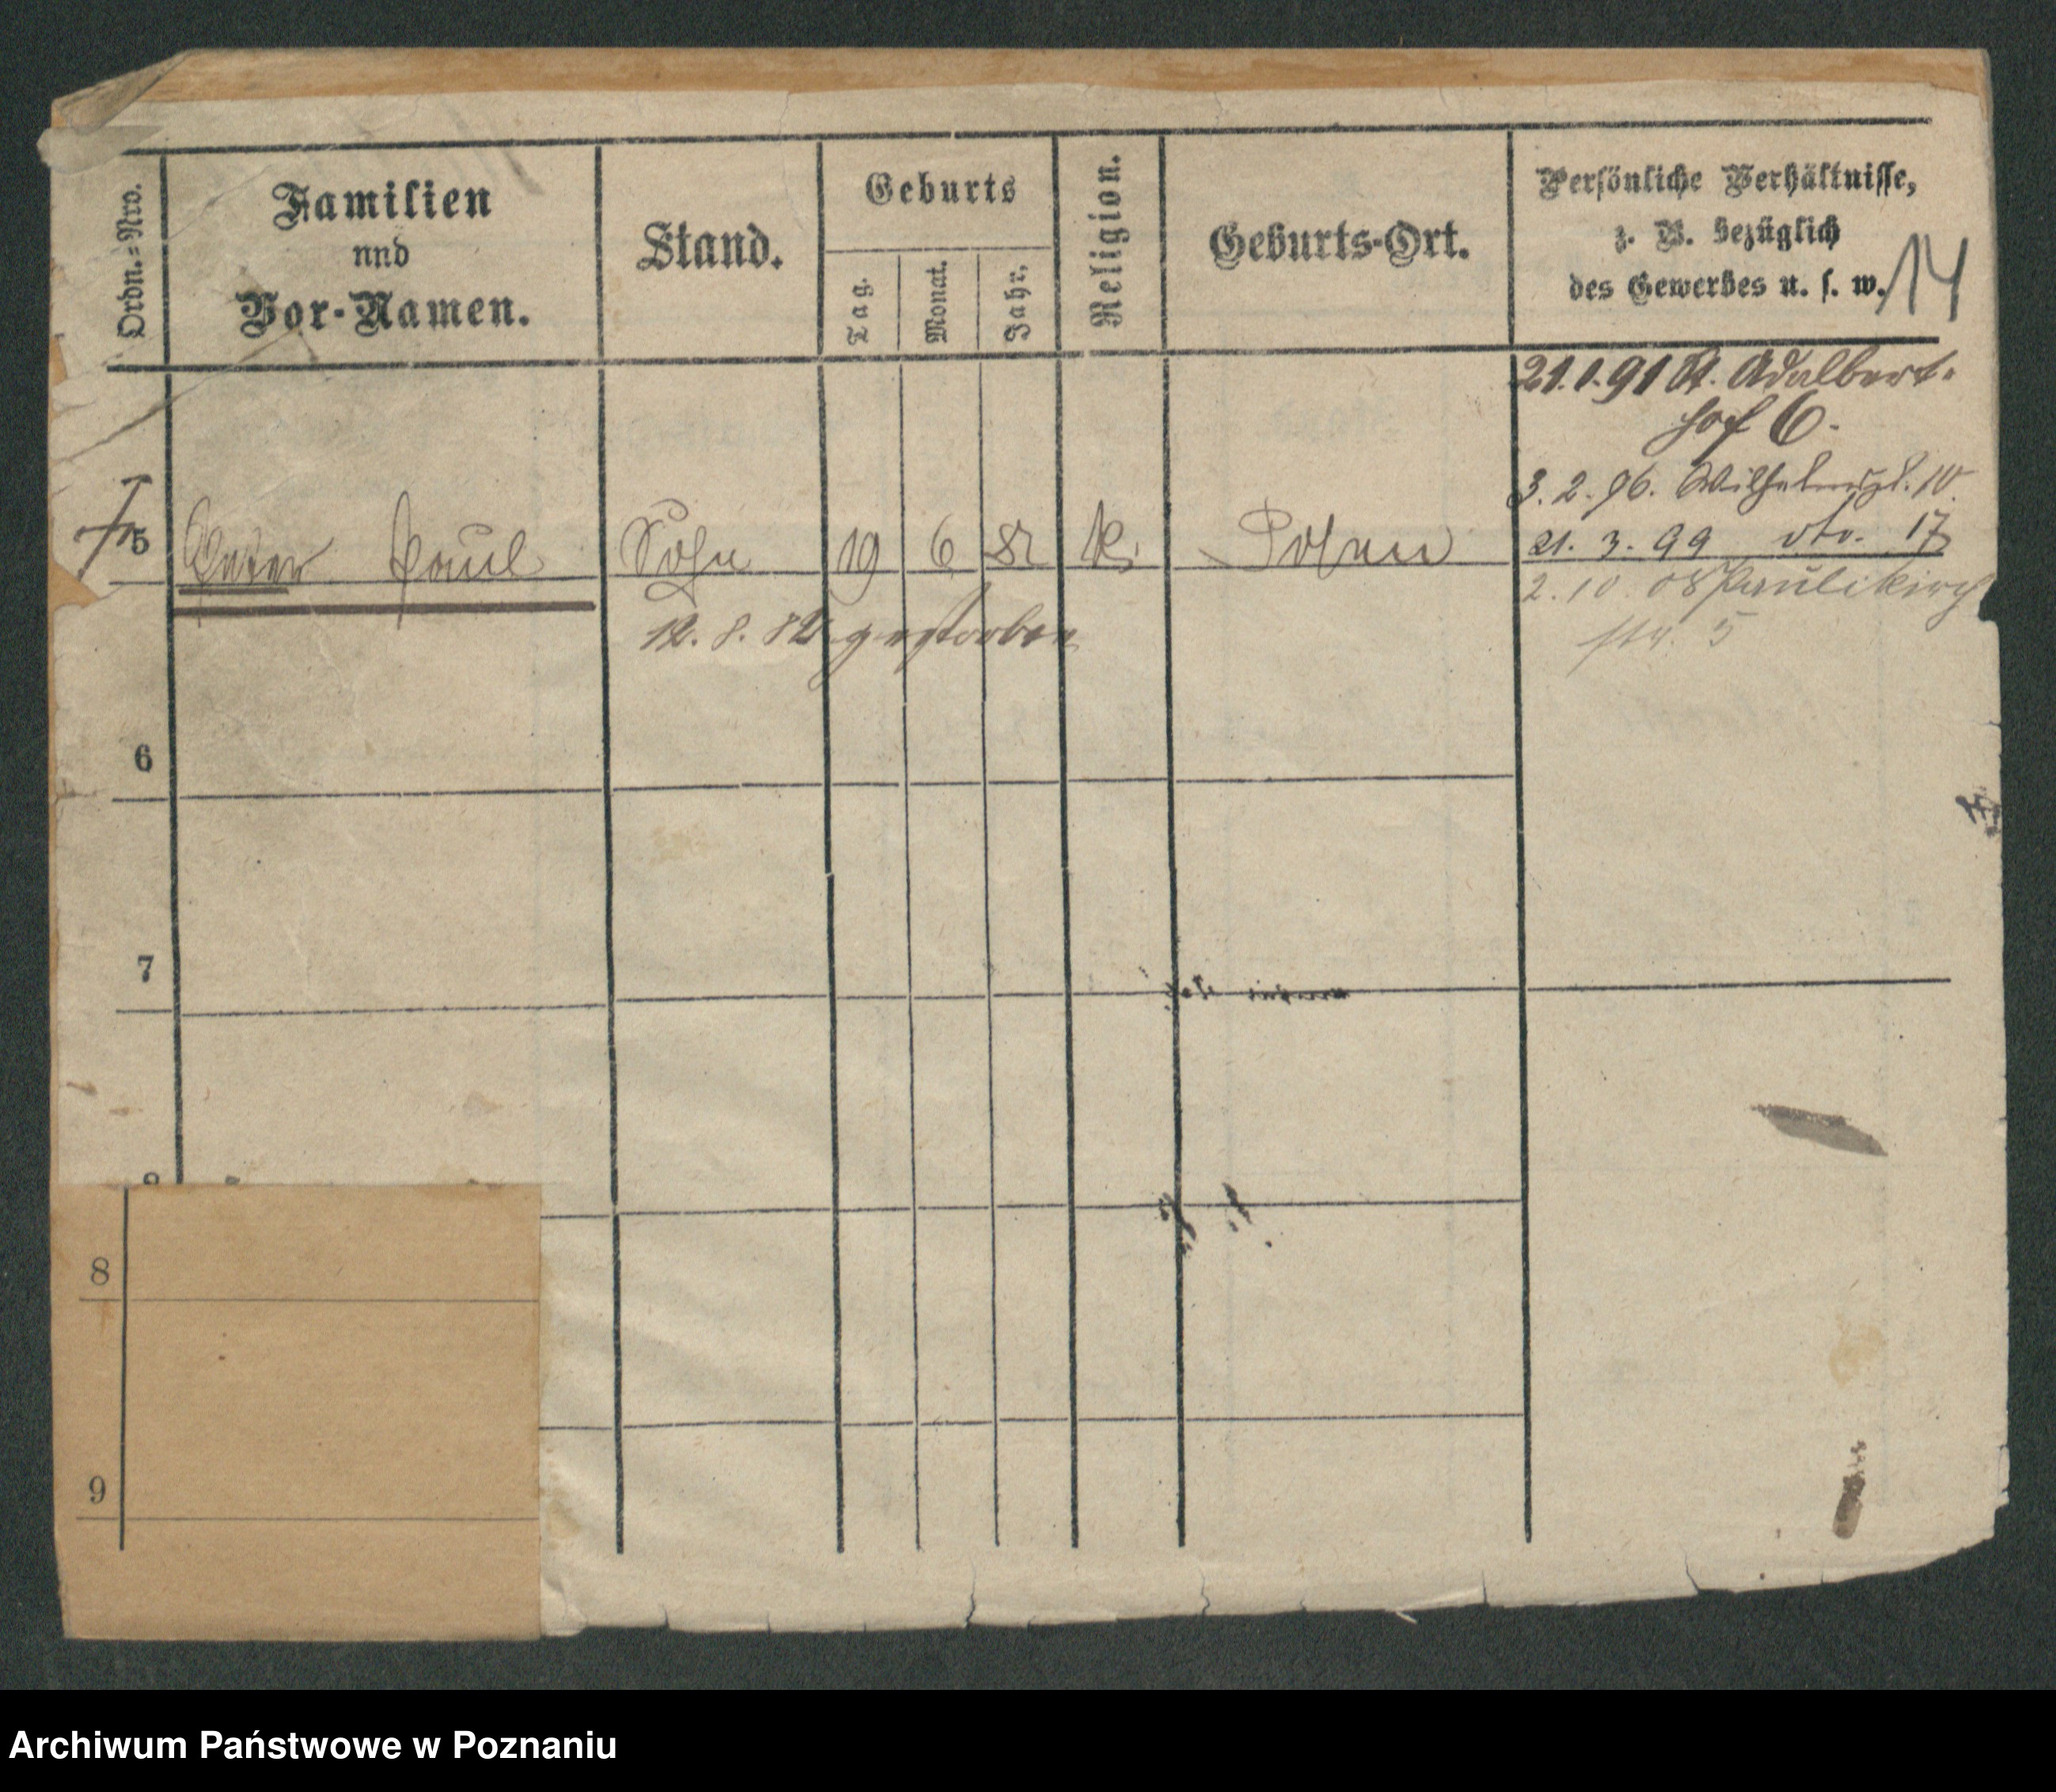 Ordn.=Nro.
Familien
und
Vor-Namen.
Stand.
Geburts
Tag.
Monat.
Jahr.
Religion.
Geburts-Ort.
Persönliche Verhältnisse,
z. B. bezüglich
des Gewerbes u. s. w.
14
21.1.91 St. Adalbert-
hof 6.
3. 2. 96. Wilhelmspl. 10.
21. 3. 99 dto. 17
2. 10. 08 Paulikirch
str. 5
5 Peter Paul Sohn 19 6 82 k. Posen
12. 8. 82 gestorben
6
7
8
8
9
Archiwum Państwowe w Poznaniu